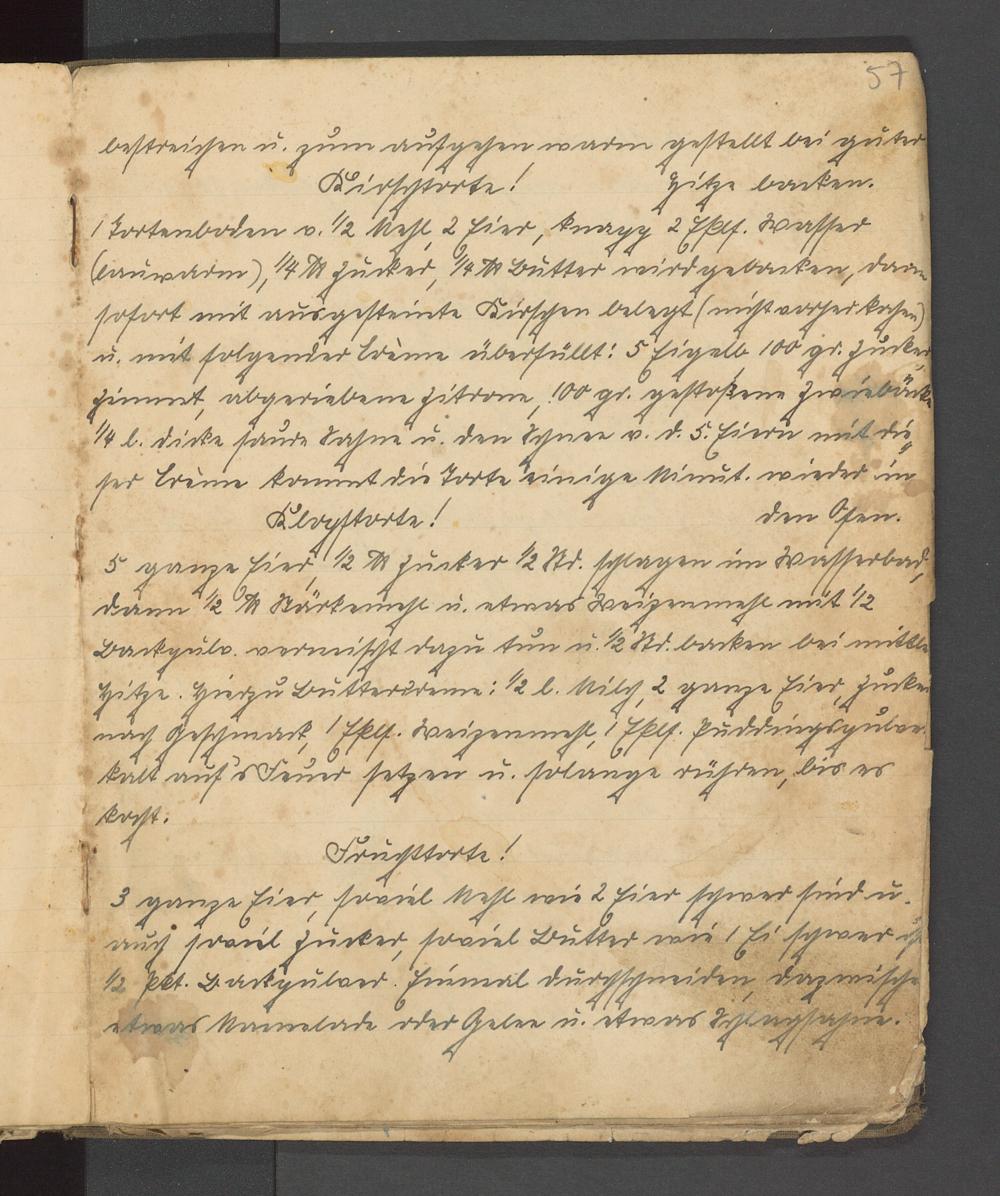 57
bestreichen u. zum aufgehen warm gestellt bei guter
Hitze backen.
Kirschtorte!
1 Tortenboden v. 1/2 Mehl, 2 Eier, knapp 2 Eßlf. Wasser
(lauwarm), 1/4 ℔ Zucker, 1/4 ℔ Butter wird gebacken, dann
sofort mit ausgesteinte Kirschen belegt (nicht vorher kochen)
u. mit folgender Crème überfüllt: 5 Eigelb 100 gr. Zucker,
Zimmt, abgeriebene Zitrone, 100 gr. gestoßene Zwiebäcke
1/4 l. dicke saure Sahne u. den Schnee v. d. 5. Eiern mit die
ser Crème kommt die Torte einige Minut. wieder in
den Ofen.
Klopstorte!
5 ganze Eier, 1/2 ℔ Zucker 1/2 Std. schlagen im Wasserbad,
dann 1/2 ℔ Stärkemehl u. etwas Weizenmehl mit 1/2
Backpulv. vermischt dazu tun u. 1/2 Std. backen bei mittle
Hitze. Hierzu Buttercreme: 1/2 l. Milch, 2 ganze Eier, Zucker
nach Geschmack, 1 Eßlf. Weizenmehl, 1 Eßlf. Puddingspulver
kalt auf's Feuer setzen u. solange rühren, bis es
kocht.
Fruchttorte!
3 ganze Eier, soviel Mehl wie 2 Eier schwer sind u.
auch soviel Zucker, soviel Butter wie 1 Ei schwer ist
1/2 Pkt. Backpulver. Einmal durchschneiden, dazwische
etwas Mamelade oder Gelee u. etwas Schlagsahne.